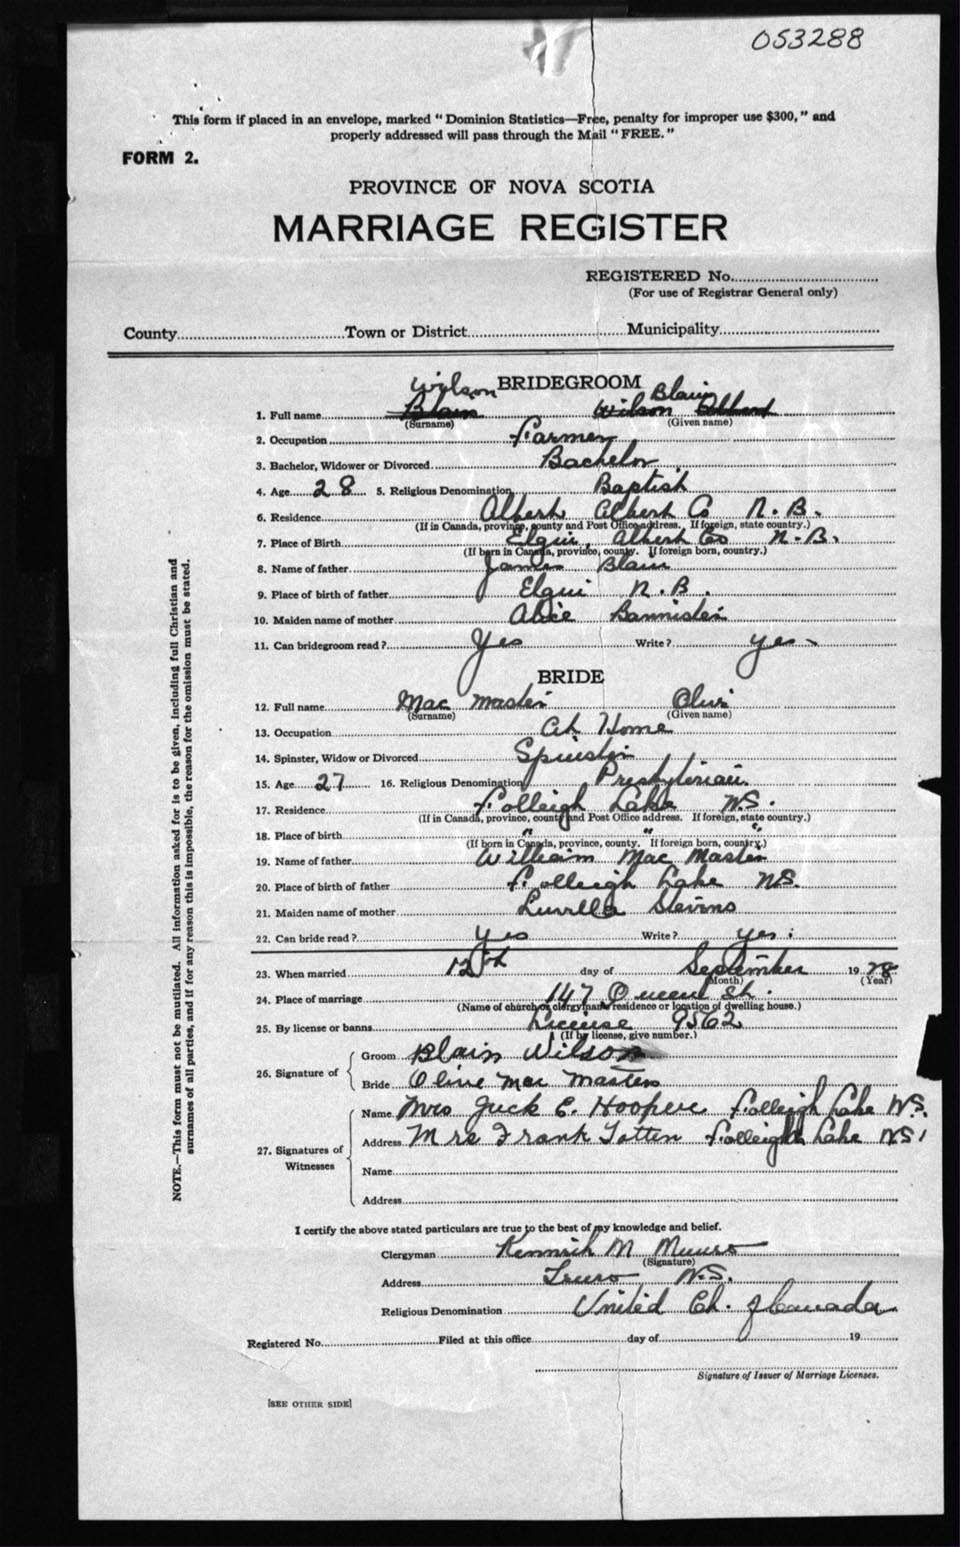 053288
This form if placed in an envelope, marked "Dominion Statistics—Free, penalty for improper use $300," and
properly addressed will pass through the Mail "FREE."
FORM 2.
PROVINCE OF NOVA SCOTIA
MARRIAGE REGISTER
REGISTERED No.
(For use of Registrar General only)
County Town or District Municipality
BRIDEGROOM
Wilson Blair
1. Full name Blair Wilson
(Surname) (Given name)
2. Occupation Farmer
3. Bachelor, Widower or Divorced Bachelor
4. Age 28 5. Religious Denomination Baptist
6. Residence Albert Albert Co N.B.
(If in Canada, province, county and Post Office address. If foreign, state country.)
7. Place of Birth Elgin, Albert Co N.B.
(If born in Canada, province, county. If foreign born, country.)
8. Name of father James Blair
9. Place of birth of father Elgin N.B.
10. Maiden name of mother Alice Bannister
11. Can bridegroom read? Yes Write? yes
BRIDE
12. Full name Mac Master Olive
(Surname) (Given name)
13. Occupation At Home
14. Spinster, Widow or Divorced Spinster
15. Age 27 16. Religious Denomination Presbyterian
17. Residence Folleigh Lake N.S.
(If in Canada, province, county and Post Office address. If foreign, state country.)
18. Place of birth " " "
(If born in Canada, province, county. If foreign born, country.)
19. Name of father William Mac Master
20. Place of birth of father Folleigh Lake N.S.
21. Maiden name of mother Luvella Stevens
22. Can bride read? yes Write? yes
23. When married 12th day of September 1928
(Month) (Year)
24. Place of marriage 147 Queen St.
(Name of church or clergyman's residence or location of dwelling house.)
25. By license or banns License 9562
(If by license, give number.)
26. Signature of
Groom Blair Wilson
Bride Olive Mac Masters
27. Signatures of Witnesses
Name Mrs Jack E. Hooper Folleigh Lake N.S.
Address Mrs Frank Totten Folleigh Lake N.S.
Name
Address
I certify the above stated particulars are true to the best of my knowledge and belief.
Clergyman Kenneth M Munro
(Signature)
Address Truro N.S.
Religious Denomination United Ch. of Canada
Registered No. Filed at this office day of 19
Signature of Issuer of Marriage Licenses.
[SEE OTHER SIDE]
NOTE.—This form must not be mutilated. All information asked for is to be given, including full Christian and
surnames of all parties, and if for any reason this is impossible, the reason for the omission must be stated.